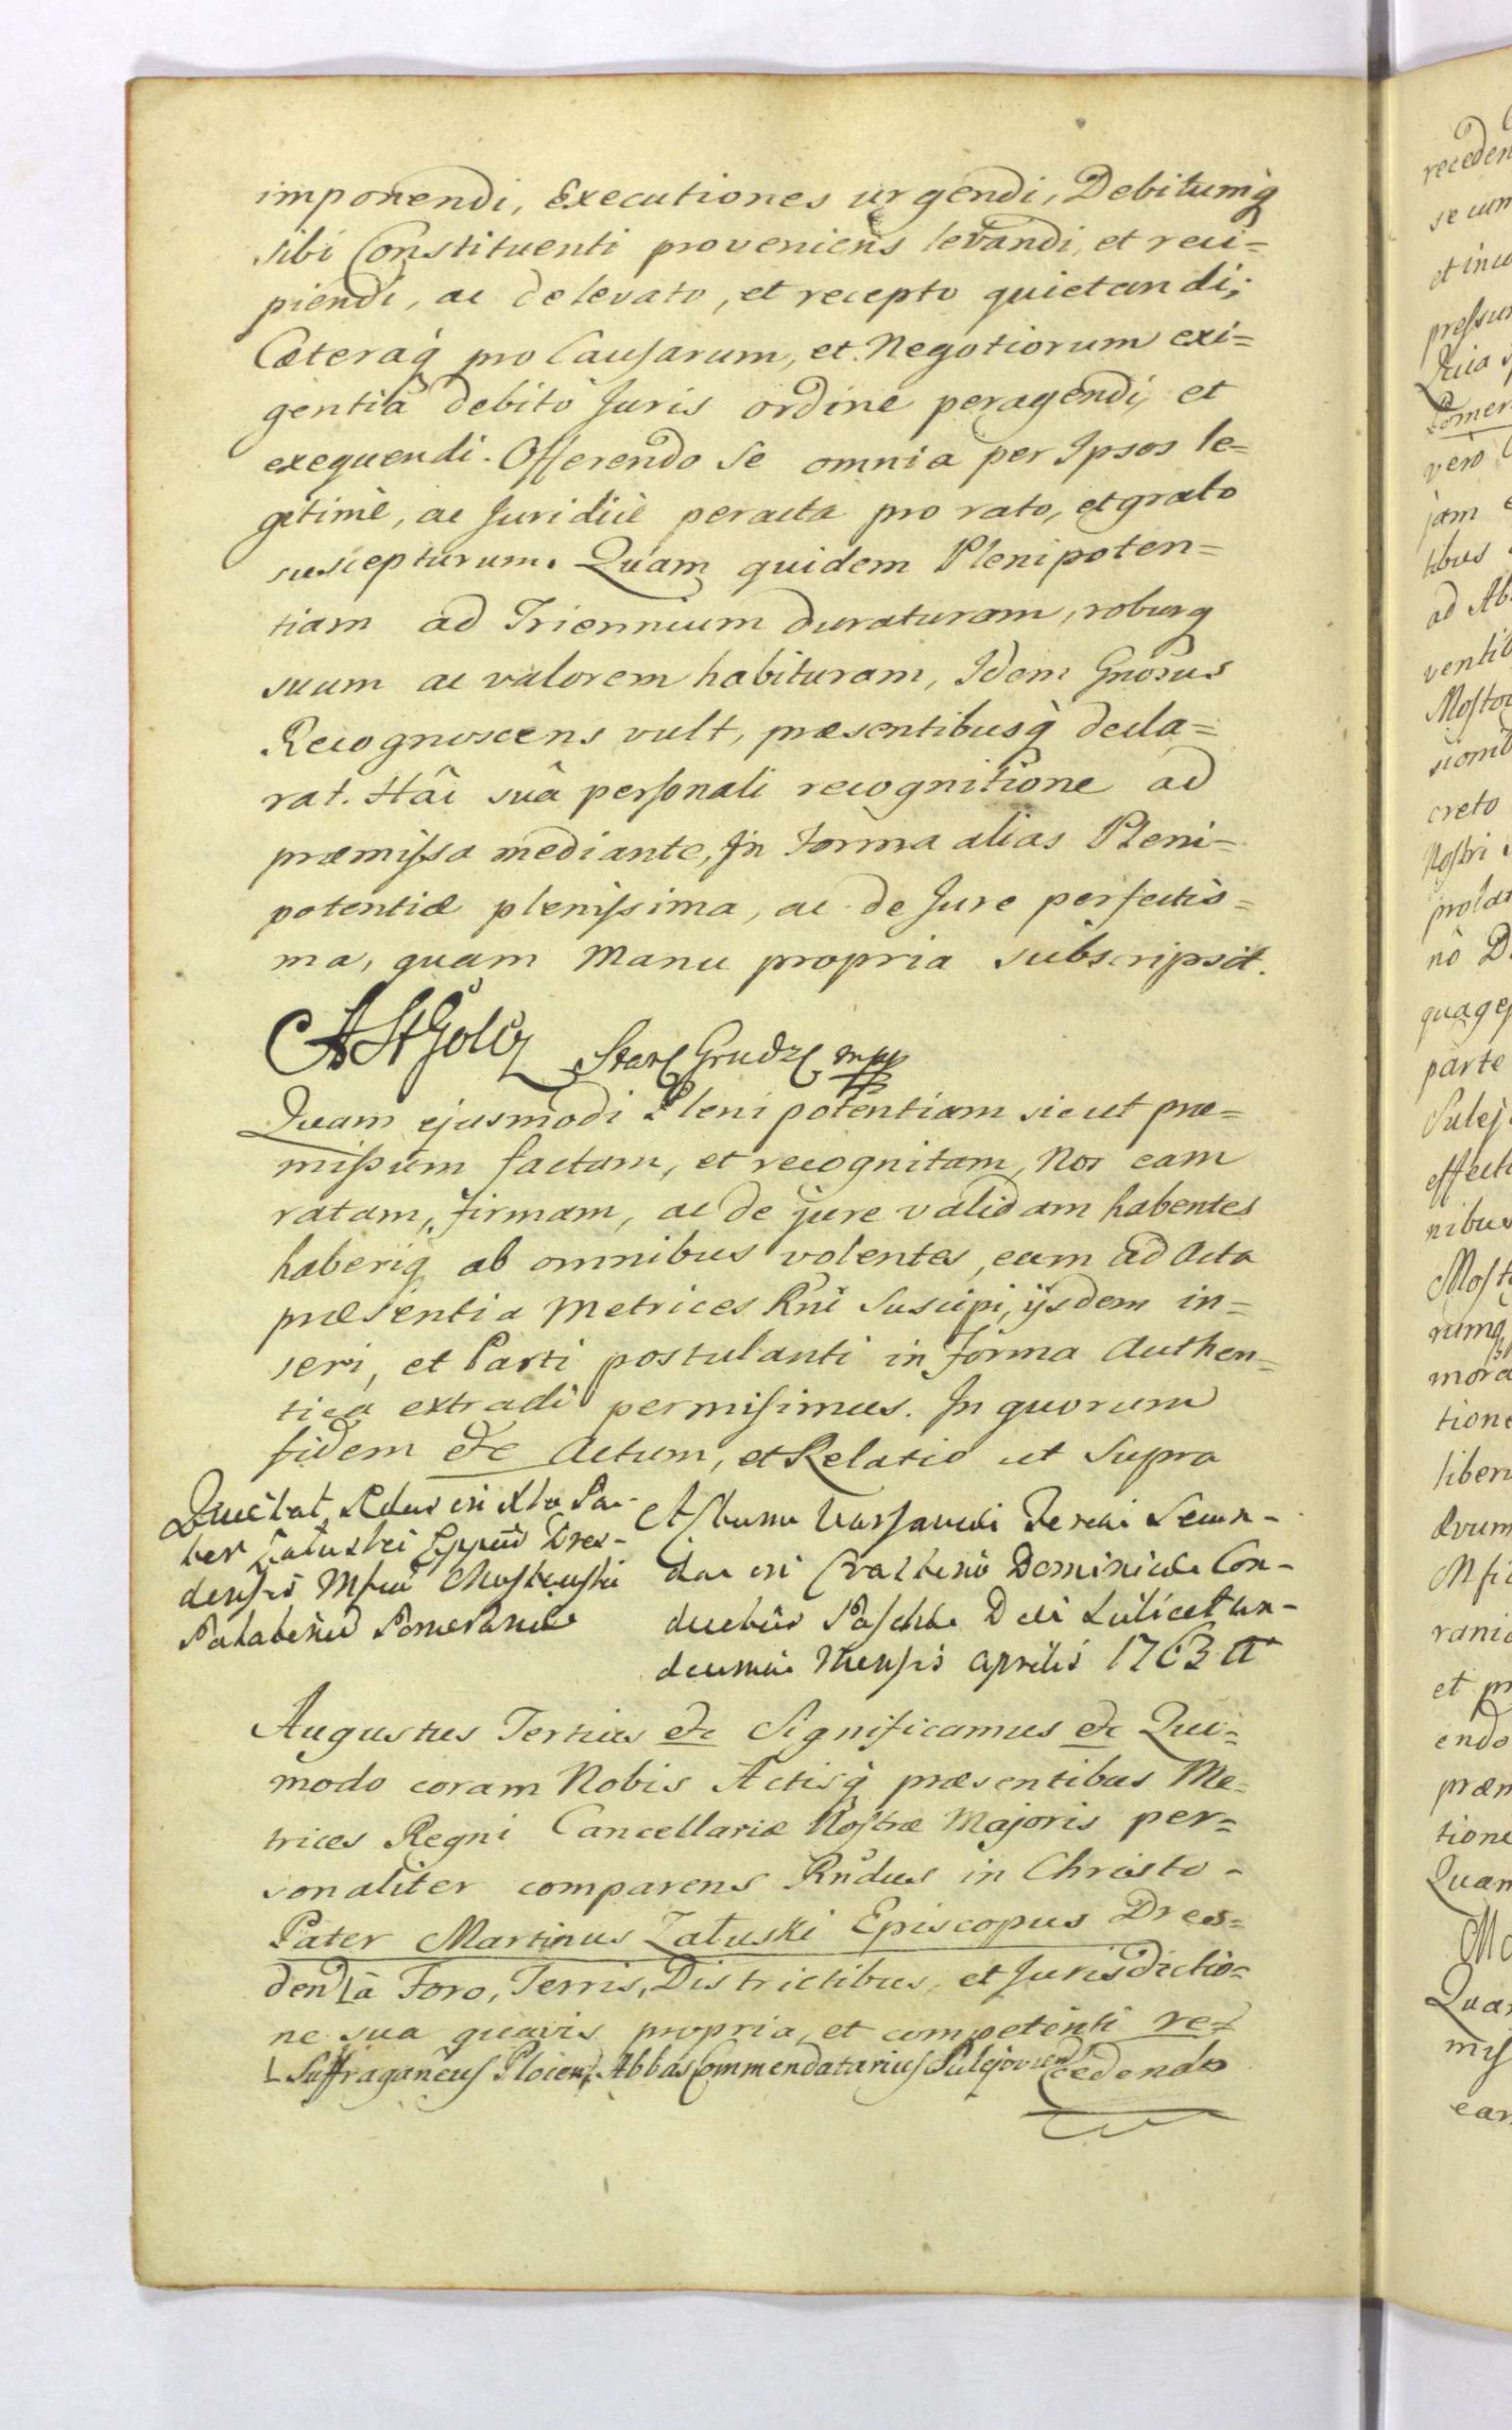 imponendi, Executiones urgendi, Debitumq̃
sibi Constituenti proveniens levandi, et reci=
piendi, ac de levato, et recepto quietandi;
Cæteraq̃ pro Causarum, et Negotiorum exi=
gentiâ debitô Juris ordine peragendi, et
exequendi. Offerendo Se omnia per Ipsos le=
gitimè, ac Juridicè peracta pro rato, et grato
suscepturum. Quam quidem Plenipoten=
tiam ad Triennium duraturam, roburq
suum ac valorem habituram, Idem Gnosus
Recognoscens vult, præsentibusq̀ decla=
rat. Hâc suâ personali recognitione ad
præmissa mediante, In Forma alias Pleni=
potentiæ plenissima, ac de Jure perfectis=
ma, quam Manu propria subscripsit.
A St Golcz Star Grudz mpp
Quam ejusmodi Plenipotentiam sicut præ=
missum factam, et recognitam, Nos eam
ratam, firmam, ac de jure validam habentes
haberiq ab omnibus volentes, eam ad Acta
præsentia Metrices Rni Suscipi, ijsdem in=
seri, et Parti postulanti in forma Authen=
tica extradi permisimus. In quorum
fidem &c Actum, et Relatio ut Supra
Quietat Rdus in Xto Pa-
ter Załuski Eppus Dres-
densis Mfcu Mostowski
Palatinu Pomeraniæ
Actum Varsaviæ Feria Secun-
da in Crastino Dominicæ Con-
ductus Paschæ Die Scilicet un-
decima Mensis Aprilis 1763 A
Augustus Tertius &c Significamus &c Qui=
modo coram Nobis Actisq̀ præsentibus Me=
trices Regni Cancellariæ Nostræ Majoris per=
sonaliter comparens Rndus in Christo -
Pater Martinus Załuski Episcopus Dres=
den L à Foro, Terris, Districtibus, et Jurisdictio=
ne sua quavis propria, et competenti re=
L Suffraganeus Plocen, Abbas Commendatarius Sulejovien cedendo